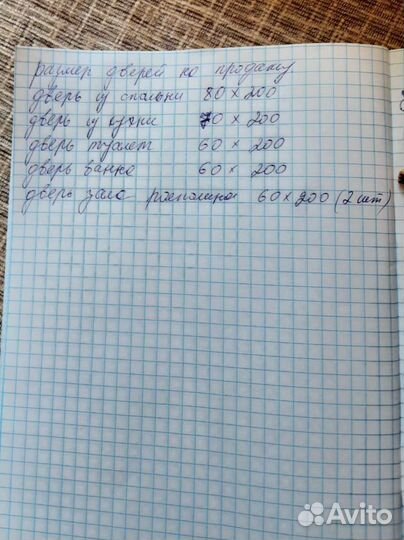 размер дверей на продажу
дверь из спальни 80 х 200
дверь из кухни 70 х 200
дверь туалет 60 х 200
дверь ванна 60 х 200
дверь зала 60 х 200 (2 шт)
Avito